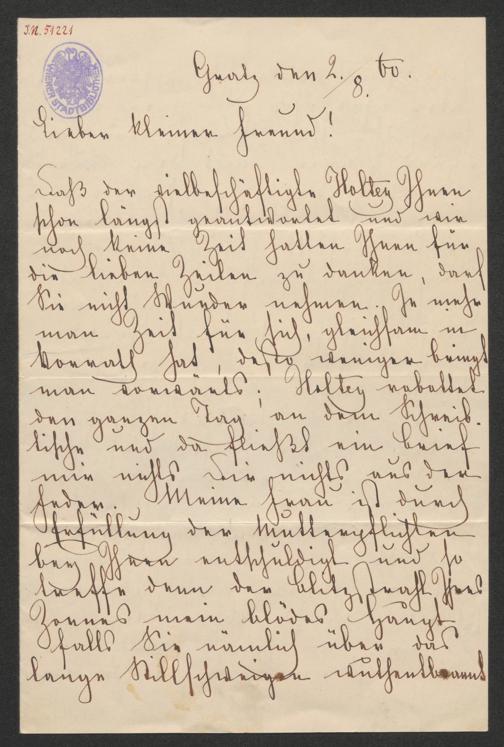 J.N. 51221
WIENER STADTBIBLIOTHEK
Gratz den 2./8. 60.
Lieber kleiner Freund!
Daß der vielbeschäftigte Holtey Ihnen
schon längst geantwortet und wir
noch keine Zeit hatten Ihnen für
die lieben Zeilen zu danken, darf
Sie nicht Wunder nehmen. Je mehr
man Zeit für sich, gleichsam in
Vorrath hat, desto weniger bringt
man vorwärts; Holtey rabottet
den ganzen Tag an dem Schreib-
tische und da fließt ein Brief
mir nichts Dir nichts aus der
Feder. Meine Frau ist durch
Erfüllung der Mutterpflichten
bey Ihnen entschuldigt und so
treffe denn der Blitzstrahl Ihres
Zornes mein blödes Haupt
falls Sie nämlich über das
lange Stillschweigen wuthentbrannt